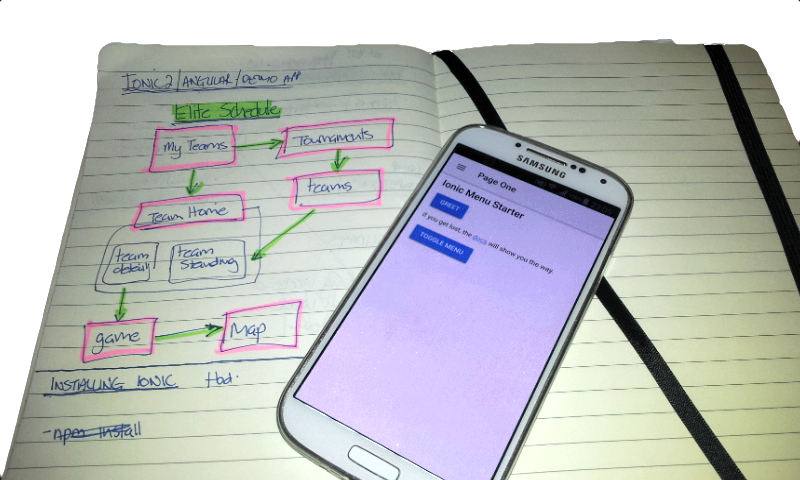 IONIC 2/ANGULAR/DEMO APP
Elite Schedule
My Teams
Tournaments
teams
Team Home
team
detail
team
Standing
game
Map
INSTALLING IONIC tbd.
- npm install
SAMSUNG
Page One
Ionic Menu Starter
GREET
If you get lost, the docs will show you the way.
TOGGLE MENU